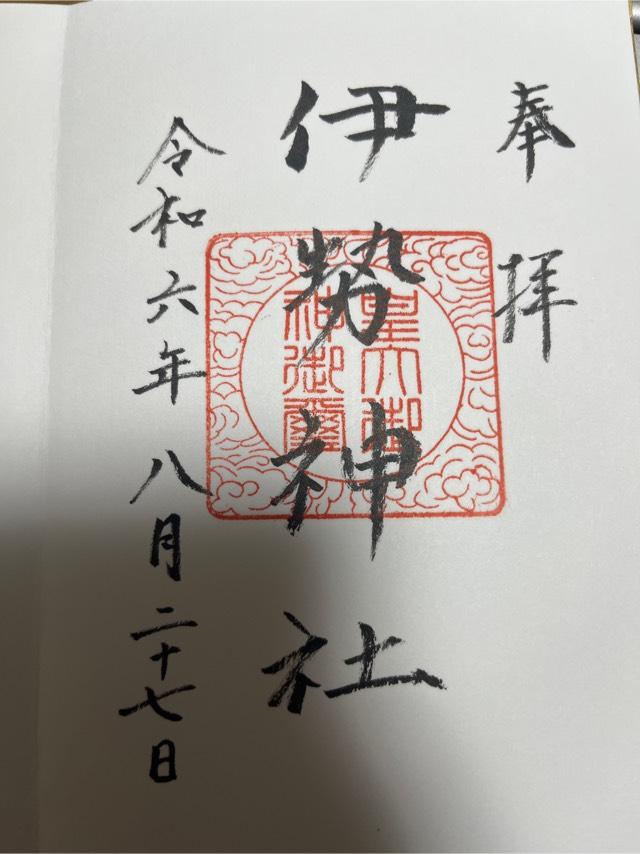 奉拝
伊勢神社
皇大御
神御璽
令和六年八月二十七日